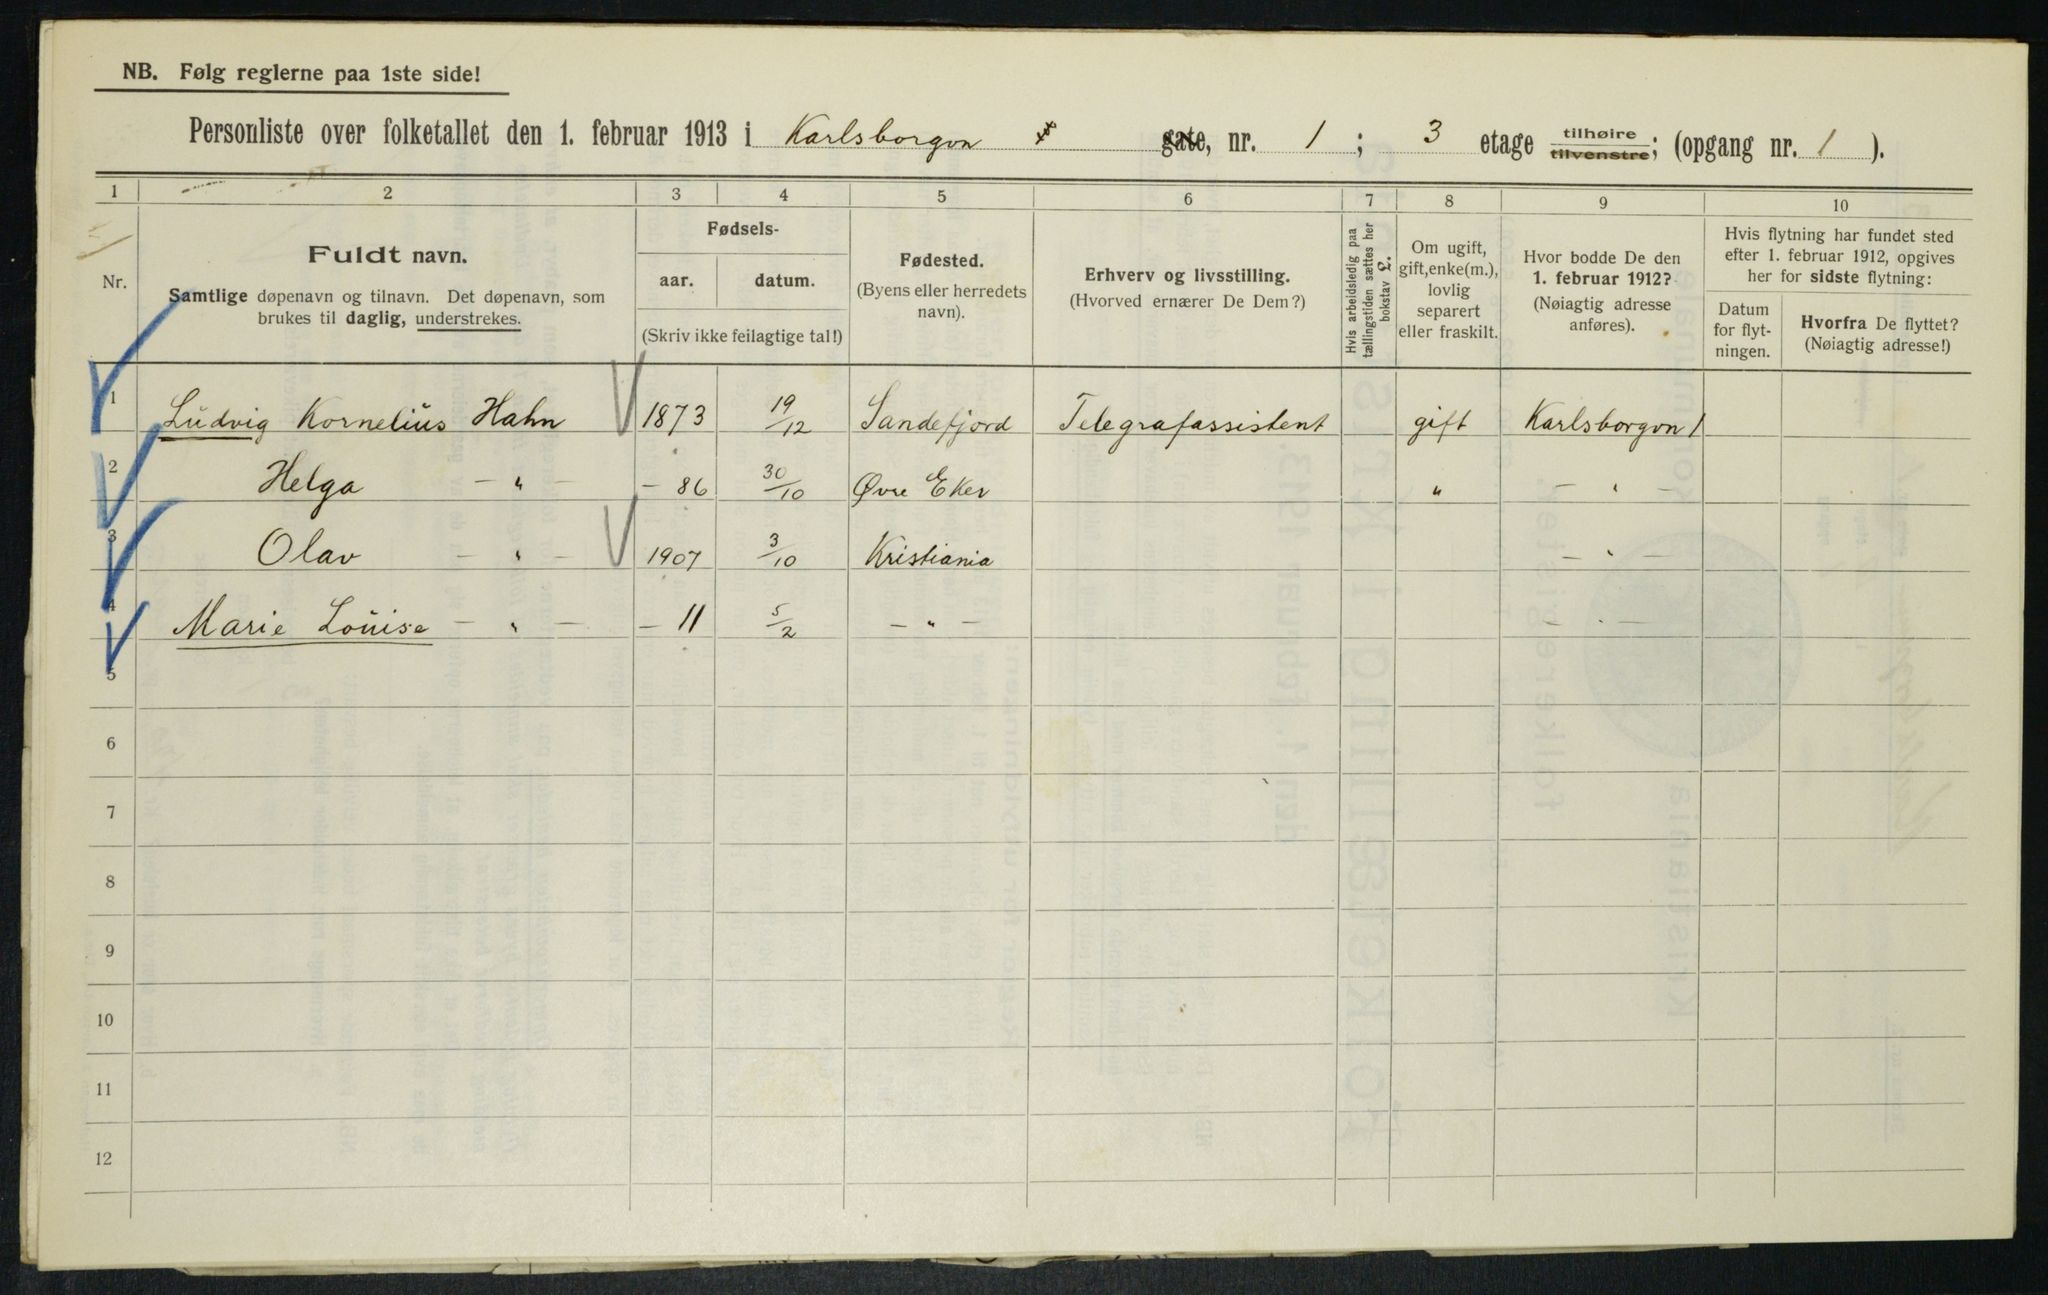 NB. Følg reglerne paa 1ste side!
Personliste over folketallet den 1. februar 1913 i Karlsborgvn gate, nr. 1 ; 3 etage tilhøire tilvenstre; (opgang nr. 1 ).
1 2 3 4 5 6 7 8 9 10
Nr.
Fuldt navn.
Samtlige døpenavn og tilnavn. Det døpenavn, som
brukes til daglig, understrekes.
Fødsels-
aar. datum.
(Skriv ikke feilagtige tal!)
Fødested.
(Byens eller herredets
navn).
Erhverv og livsstilling.
(Hvorved ernærer De Dem?)
Hvis arbeidsledig paa
tællingstiden sættes her
bokstav L.
Om ugift,
gift, enke(m.),
lovlig
separert
eller fraskilt.
Hvor bodde De den
1. februar 1912?
(Nøiagtig adresse
anføres).
Hvis flytning har fundet sted
efter 1. februar 1912, opgives
her for sidste flytning:
Datum
for flyt-
ningen.
Hvorfra De flyttet?
(Nøiagtig adresse!)
1 Ludvig Kornelius Hahn 1873 19/12 Sandefjord Telegrafassistent gift Karlsborgvn 1
2 Helga — " — — 86 30/10 Øvre Eker " — " —
3 Olav — " — 1907 3/10 Kristiania — " —
4 Marie Louise — " — — 11 5/2 — " — — " —
5
6
7
8
9
10
11
12